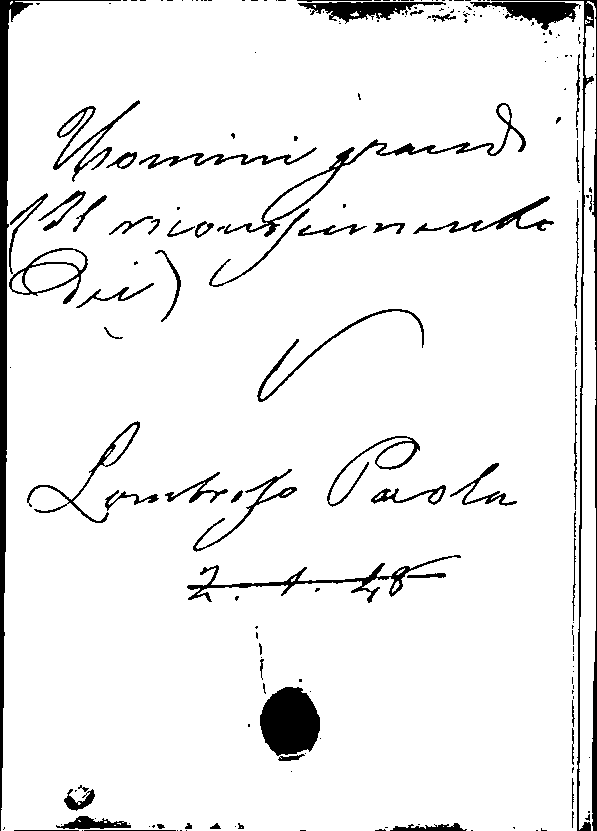 Uomini grandi
(Il riconoscimento
dei)
V
Lombroso Paola
2. 1. 48